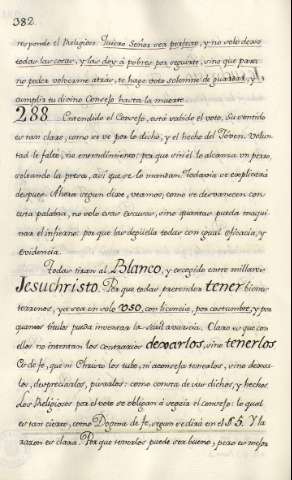 382.
responde el Religioso. Quiero Señor ser perfecto, y no solo dexo
todas las cosas, y las doy à pobres por seguirte, sino que para
no poder volverme atràs, te hago voto solemne de guardar, y
cumplir tu divino Consejo hasta la muerte
288 Entendido el Consejo, està sabido el voto. Su sentido
es tan claro, como se ve por lo dicho, y el hecho del Joven. Volun-
tad le faltò, no entendimiento: por que sinò lo alcanza un perro,
soltando la presa, asi que se lo mandan. Todavia se explicarà
despues. Ahora sigun dixe, veamos, como se desvanecen con
esta palabra, no solo esas escusas, sino quantas pueda maqui-
nar el infierno: por que las deguella todas con igual eficacia, y
evidencia.
Todas tiran al Blanco, y escogido entre millares
Jesuchristo. Por que todas pretenden tener bienes
terrenos, ya sea en solo uso, con licencia, por costumbre, y por
quantos titulos pueda inventar la sutil avaricia. Claro es que con
ellos no intentan los contrarios dexarlos, sino tenerlos
Es de fe, que ni Christo los tubo, ni aconseja tenerlos, sino dexar-
los, despreciarlos, pisarlos: como consta de sus dichos, y hechos.
Los Religiosos por el voto se obligan à seguir el consejo: lo qual
es tan cierto, como Dogma de fe, segun se dirà en el § 5. Y la
razon es clara. Por que tenerlos puede ser bueno; pero es mejor